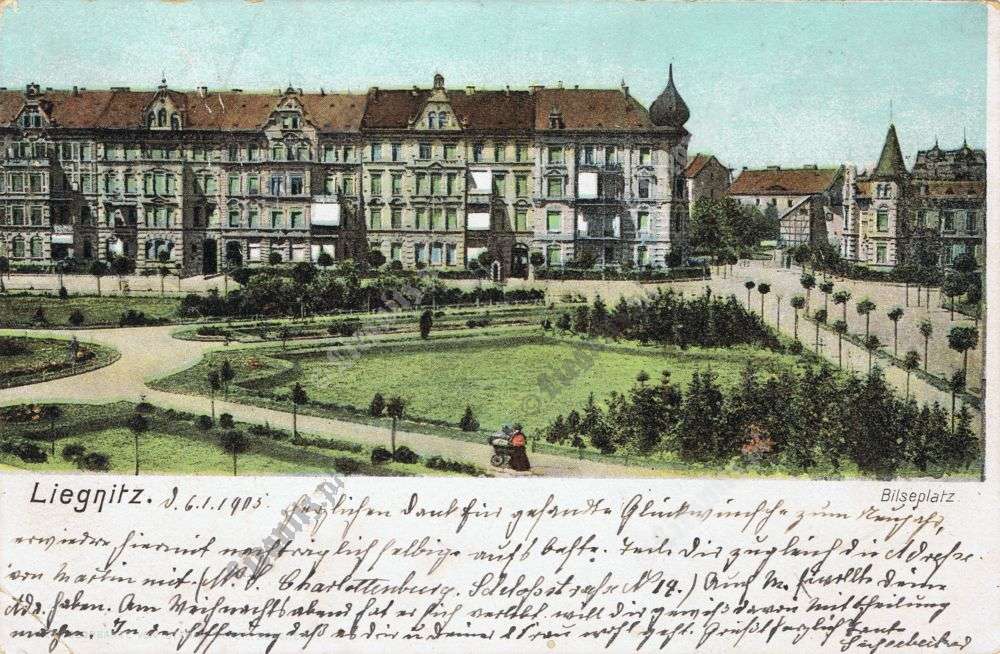 Liegnitz.
Bilseplatz
d. 6.1.1905. Herzlichen Dank für gesandte Glückwünsche zum Neujahr,
erwiedre hiermit nachträglich selbige aufs beste. Teile dir zugleich die Adresse
von Martin mit. (M. S. Charlottenburg. Schlossstraße N 19.) Auch M. wollte deine
Adr. haben. Am Weihnachtsabend hat er sich verlobt. will dir gewiß davon Mittheilung
machen. In der Hoffnung daß es dir u deiner Frau wohl geht. Grüßt herzlich